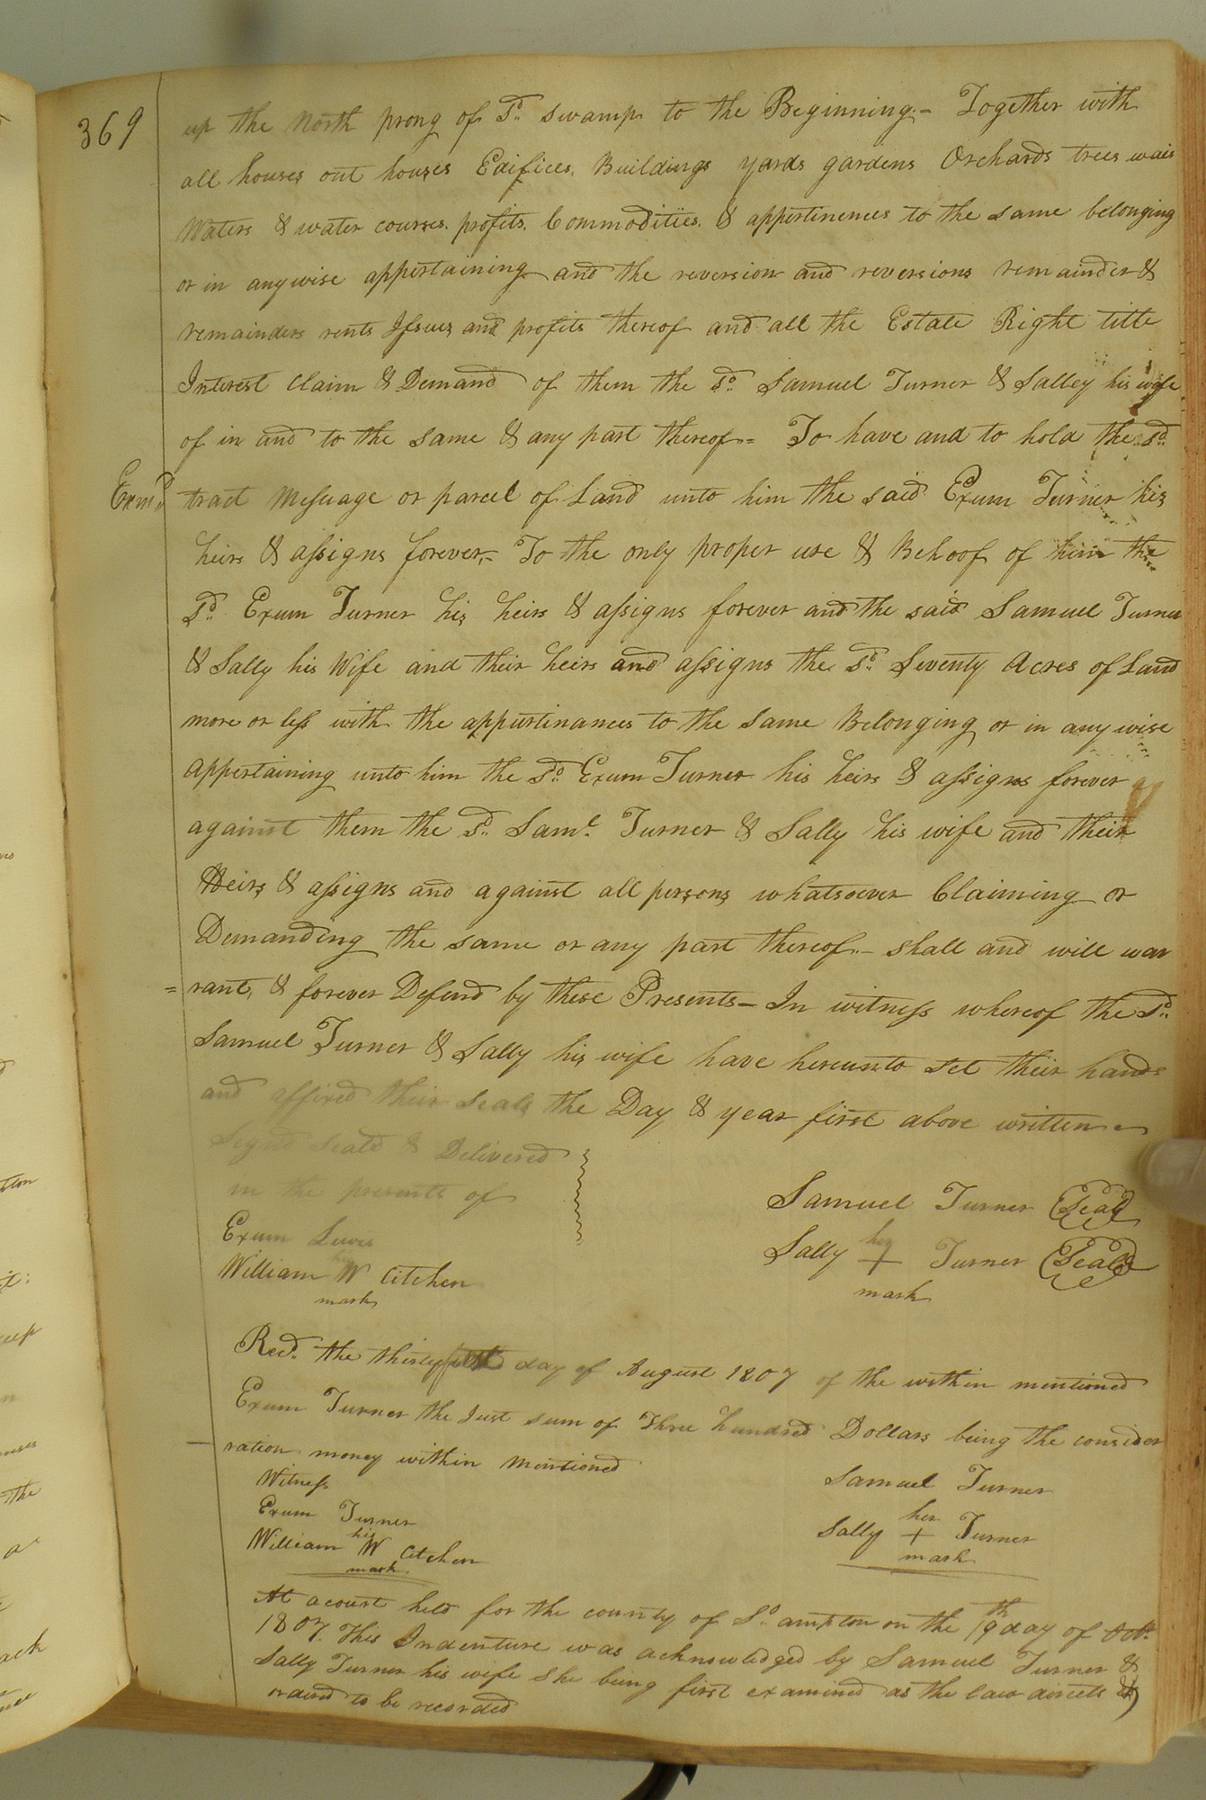 369
up the North prong of Sd. swamp to the Beginning.- Together with
all houses out houses Edifices, Buildings yards gardens Orchards trees wais
Waters & water courses. profits. Commodities. & appertinences to the same belonging
or in anywise appertaining and the reversion and reversions remainder &
remainders rents Issues and profits thereof and all the Estate Right title
Interest Claim & Demand of them the sd. Samuel Turner & Salley his wife
of in and to the same & any part thereof = To have and to hold the sd.
Exmd. tract Messuage or parcel of Land unto him the said Exum Turner his
heirs & assigns forever,- To the only proper use & Behoof of him the
sd. Exum Turner his heirs & assigns forever and the said Samuel Turner
& Sally his Wife and their heirs and assigns the sd. Seventy Acres of Land
more or less with the appurtinances to the same Belonging or in any wise
appertaining unto him the sd. Exum Turner his heirs & assigns forever
against them the sd. Saml. Turner & Sally his wife and their
Heirs & assigns and against all persons whatsoever Claiming or
Demanding the same or any part thereof - shall and will war
= rant, & forever Defend by these Presents - In witness whereof the sd.
Samuel Turner & Sally his wife have hereunto set their hands
and affixed their seals the Day & year first above written -
Signd Seald & Delivered
in the presents of
Samuel Turner Seal
Exum Lewis
Sally her + Turner Seal
mark
William his W Citchen
mark
Recd. the thirty first day of August 1807 of the within mentioned
Exum Turner the Just sum of Three hundred Dollars being the conside
- ration money within mentioned
Witness
Samuel Turner
Exum Turner
Sally her + Turner
mark
William his W Citchen
mark
At a court held for the county of So.ampton on the 19th day of Octr.
1807. This Indenture was acknowledged by Samuel Turner &
Sally Turner his wife She being first examined as the law directs &
ordered to be recorded